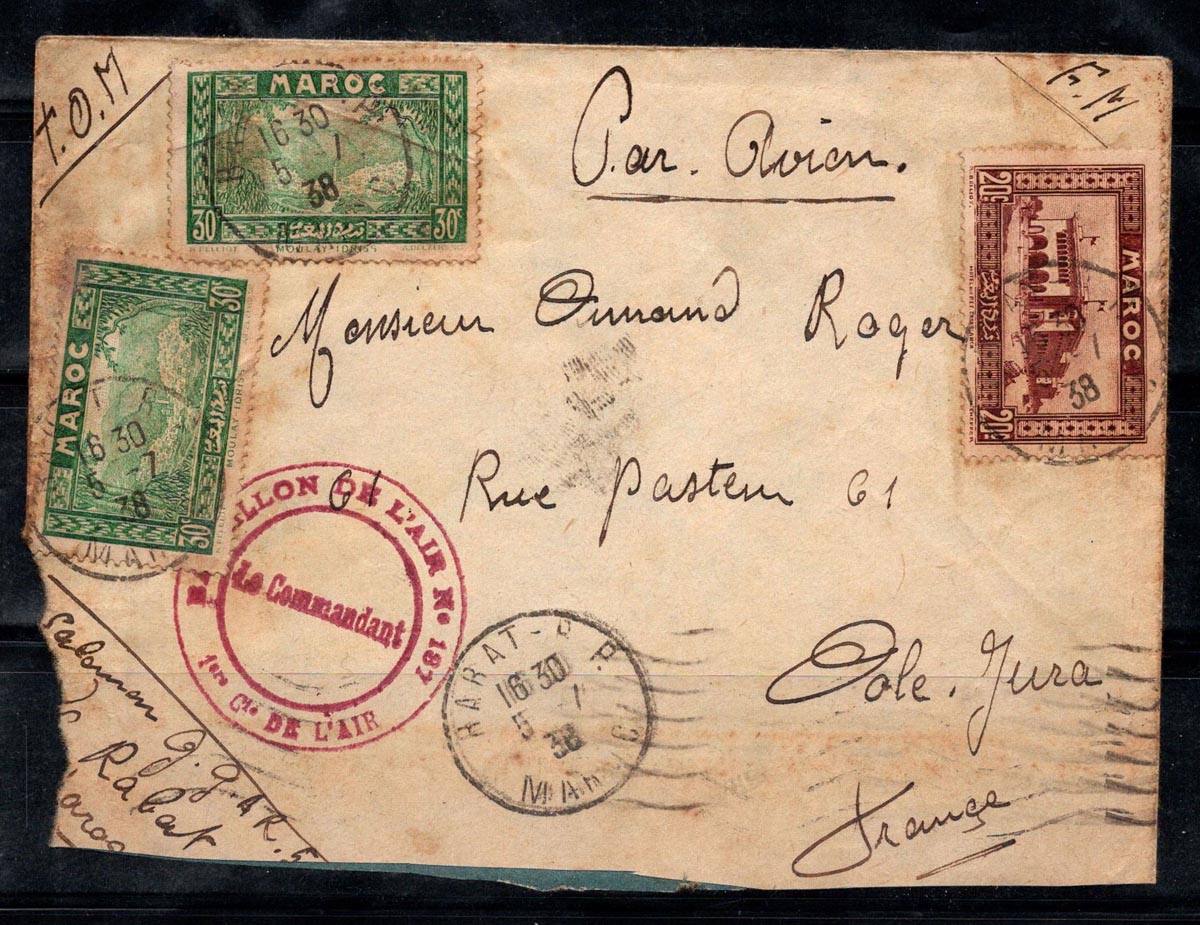 T.O.M
F.M
Par Avion.
MAROC
30
30c
MOULAY-IDRISS
16 30
5 -7
38
MAROC
30c
30c
MOULAY IDRISS
16 30
5 -7
38
20c
20c
MAROC
38
Monsieur Roger
61 Rue Pasteur 61
Dole. Jura
France
BATAILLON DE L'AIR No 187
Le Commandant
1ère Cie DE L'AIR
RABAT - R.P.
16 30
5 -7
38
MAROC
Salomon
Rabat
Maroc